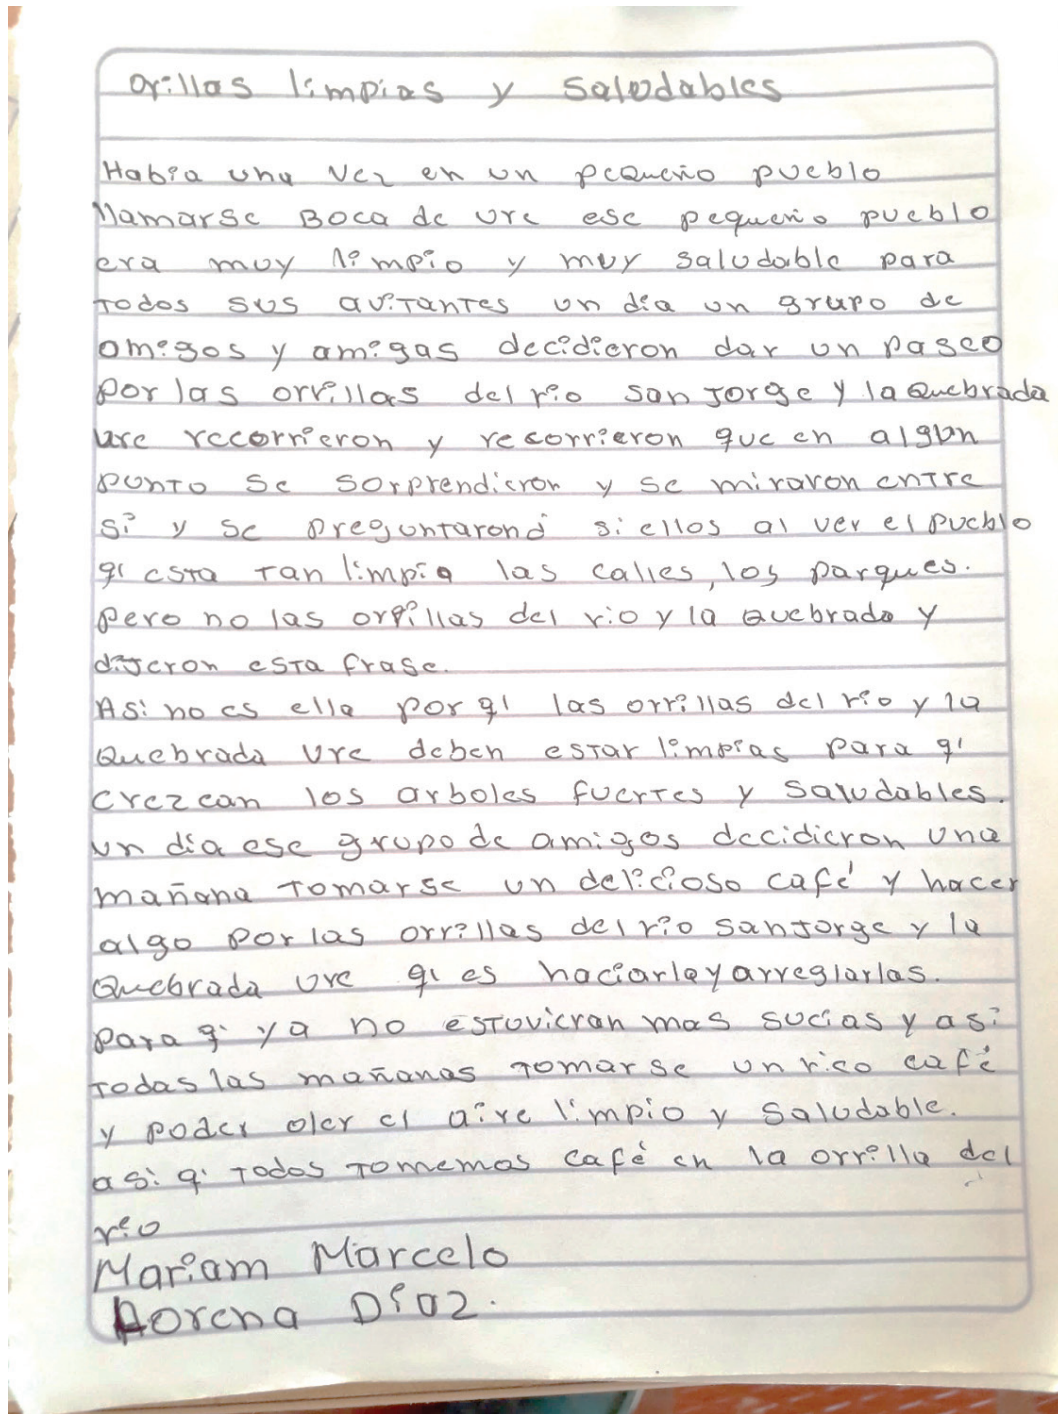 Orillas limpias y saludables
Había una vez en un pequeño pueblo
llamarse Boca de ure ese pequeño pueblo
era muy limpio y muy saludable para
todos sus avitantes un día un grupo de
amigos y amigas decidieron dar un paseo
por las orrillas del río san Jorge y la Quebrada
ure recorrieron y recorrieron que en algun
punto se sorprendieron y se miraron entre
si y se preguntarond si ellos al ver el pueblo
qi esta tan limpia las calles, los parques.
pero no las orrillas del rio y la Quebrada y
dijeron esta frase.
Asi no es ella por qi las orrillas del rio y la
Quebrada Ure deben estar limpias para qi
crezcan los arboles fuertes y saludables.
un día ese grupo de amigos decidieron una
mañana tomarse un delicioso café y hacer
algo por las orrillas del río san Jorge y la
Quebrada ure qi es haciarlayarreglarlas.
para qi ya no estuvieran mas sucias y asi
todas las mañanas tomarse un rico café
y poder oler el aire limpio y saludable.
asi qi todos tomemos café en la orrilla del
río
Mariam Marcelo
Lorena Díaz.